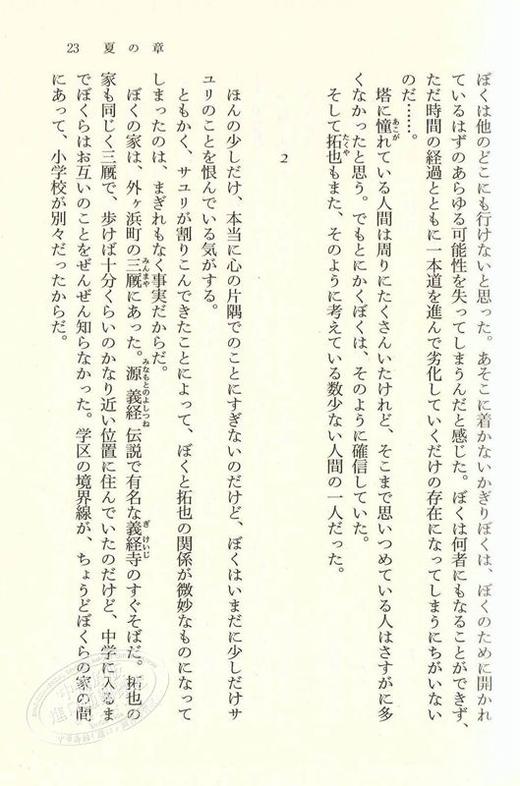 23 夏の章
ぼくは他のどこにも行けないと思った。あそこに着かないかぎりぼくは、ぼくのために開かれ
ているはずのあらゆる可能性を失ってしまうんだと感じた。ぼくは何者にもなることができず、
ただ時間の経過とともに一本道を進んで劣化していくだけの存在になってしまうにちがいない
のだ……。
塔に憧れている人間は周りにたくさんいたけれど、そこまで思いつめている人はさすがに多
くなかったと思う。でもとにかくぼくは、そのように確信していた。
そして拓也もまた、そのように考えている数少ない人間の一人だった。
2
ほんの少しだけ、本当に心の片隅でのことにすぎないのだけど、ぼくはいまだに少しだけサ
ユリのことを恨んでいる気がする。
ともかく、サユリが割りこんできたことによって、ぼくと拓也の関係が微妙なものになって
しまったのは、まぎれもなく事実だからだ。
ぼくの家は、外ヶ浜町の三厩にあった。源義経伝説で有名な義経寺のすぐそばだ。拓也の
家も同じく三厩で、歩けば十分くらいのかなり近い位置に住んでいたのだけど、中学に入るま
でぼくらはお互いのことをぜんぜん知らなかった。学区の境界線が、ちょうどぼくらの家の間
にあって、小学校が別々だったからだ。